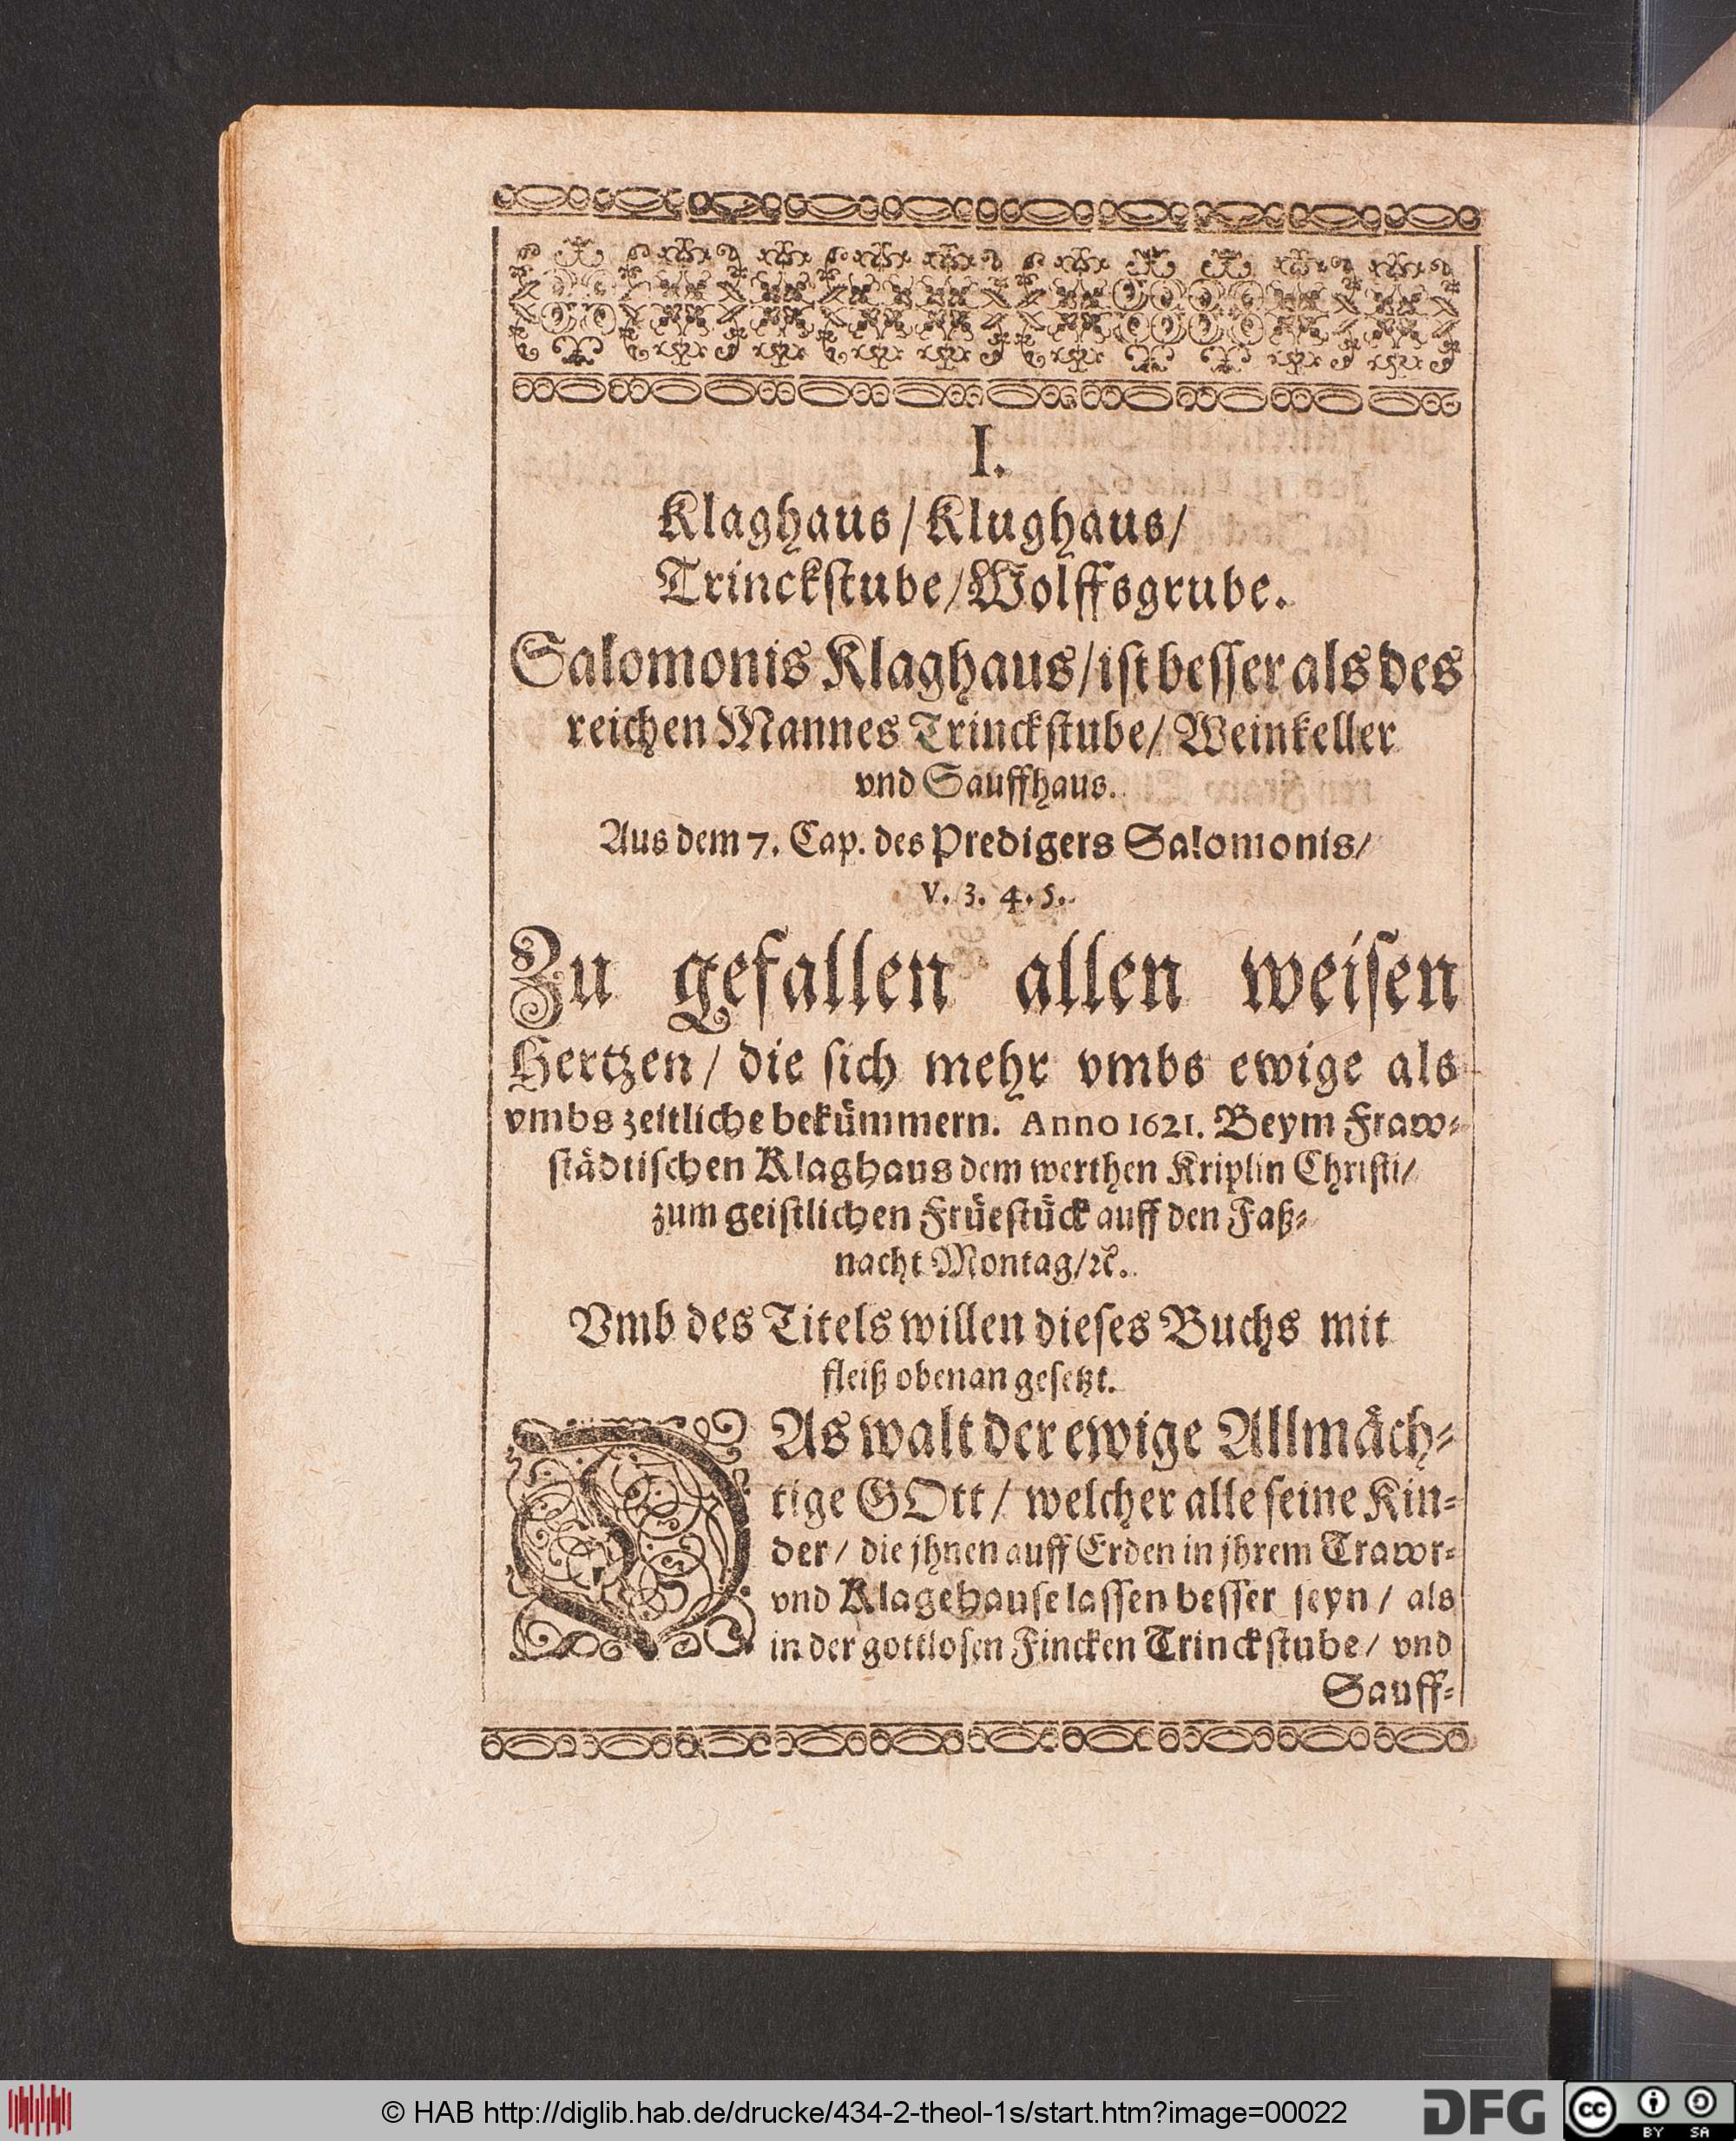 I.
Klaghaus/Klughaus/
Trinckſtube/Wolffsgrube.
Salomonis Klaghaus/iſt beſſer als des
reichen Mannes Trinckſtube/Weinkeller
vnd Sauffhaus.
Aus dem 7. Cap. des Predigers Salomonis/
V. 3. 4. 5.
Zu gefallen allen weiſen
Hertzen/ die ſich mehr vmbs ewige als
vmbs zeitliche bekümmern. Anno 1621. Beym Fraw⸗
ſtädtiſchen Klaghaus dem werthen Kriplin Chriſti/
zum geiſtlichen Früeſtück auff den Faß⸗
nacht Montag/ꝛc.
Vmb des Titels willen dieſes Buchs mit
fleiß obenan geſetzt.
DAs walt der ewige Allmäch⸗
tige GOtt/ welcher alle ſeine Kin⸗
der/ die jhnen auff Erden in jhrem Trawr⸗
vnd Klagehauſe laſſen beſſer ſeyn/ als
in der gottloſen Fincken Trinckſtube/ vnd
Sauff⸗
© HAB http://diglib.hab.de/drucke/434-2-theol-1s/start.htm?image=00022
DFG
cc
BY SA